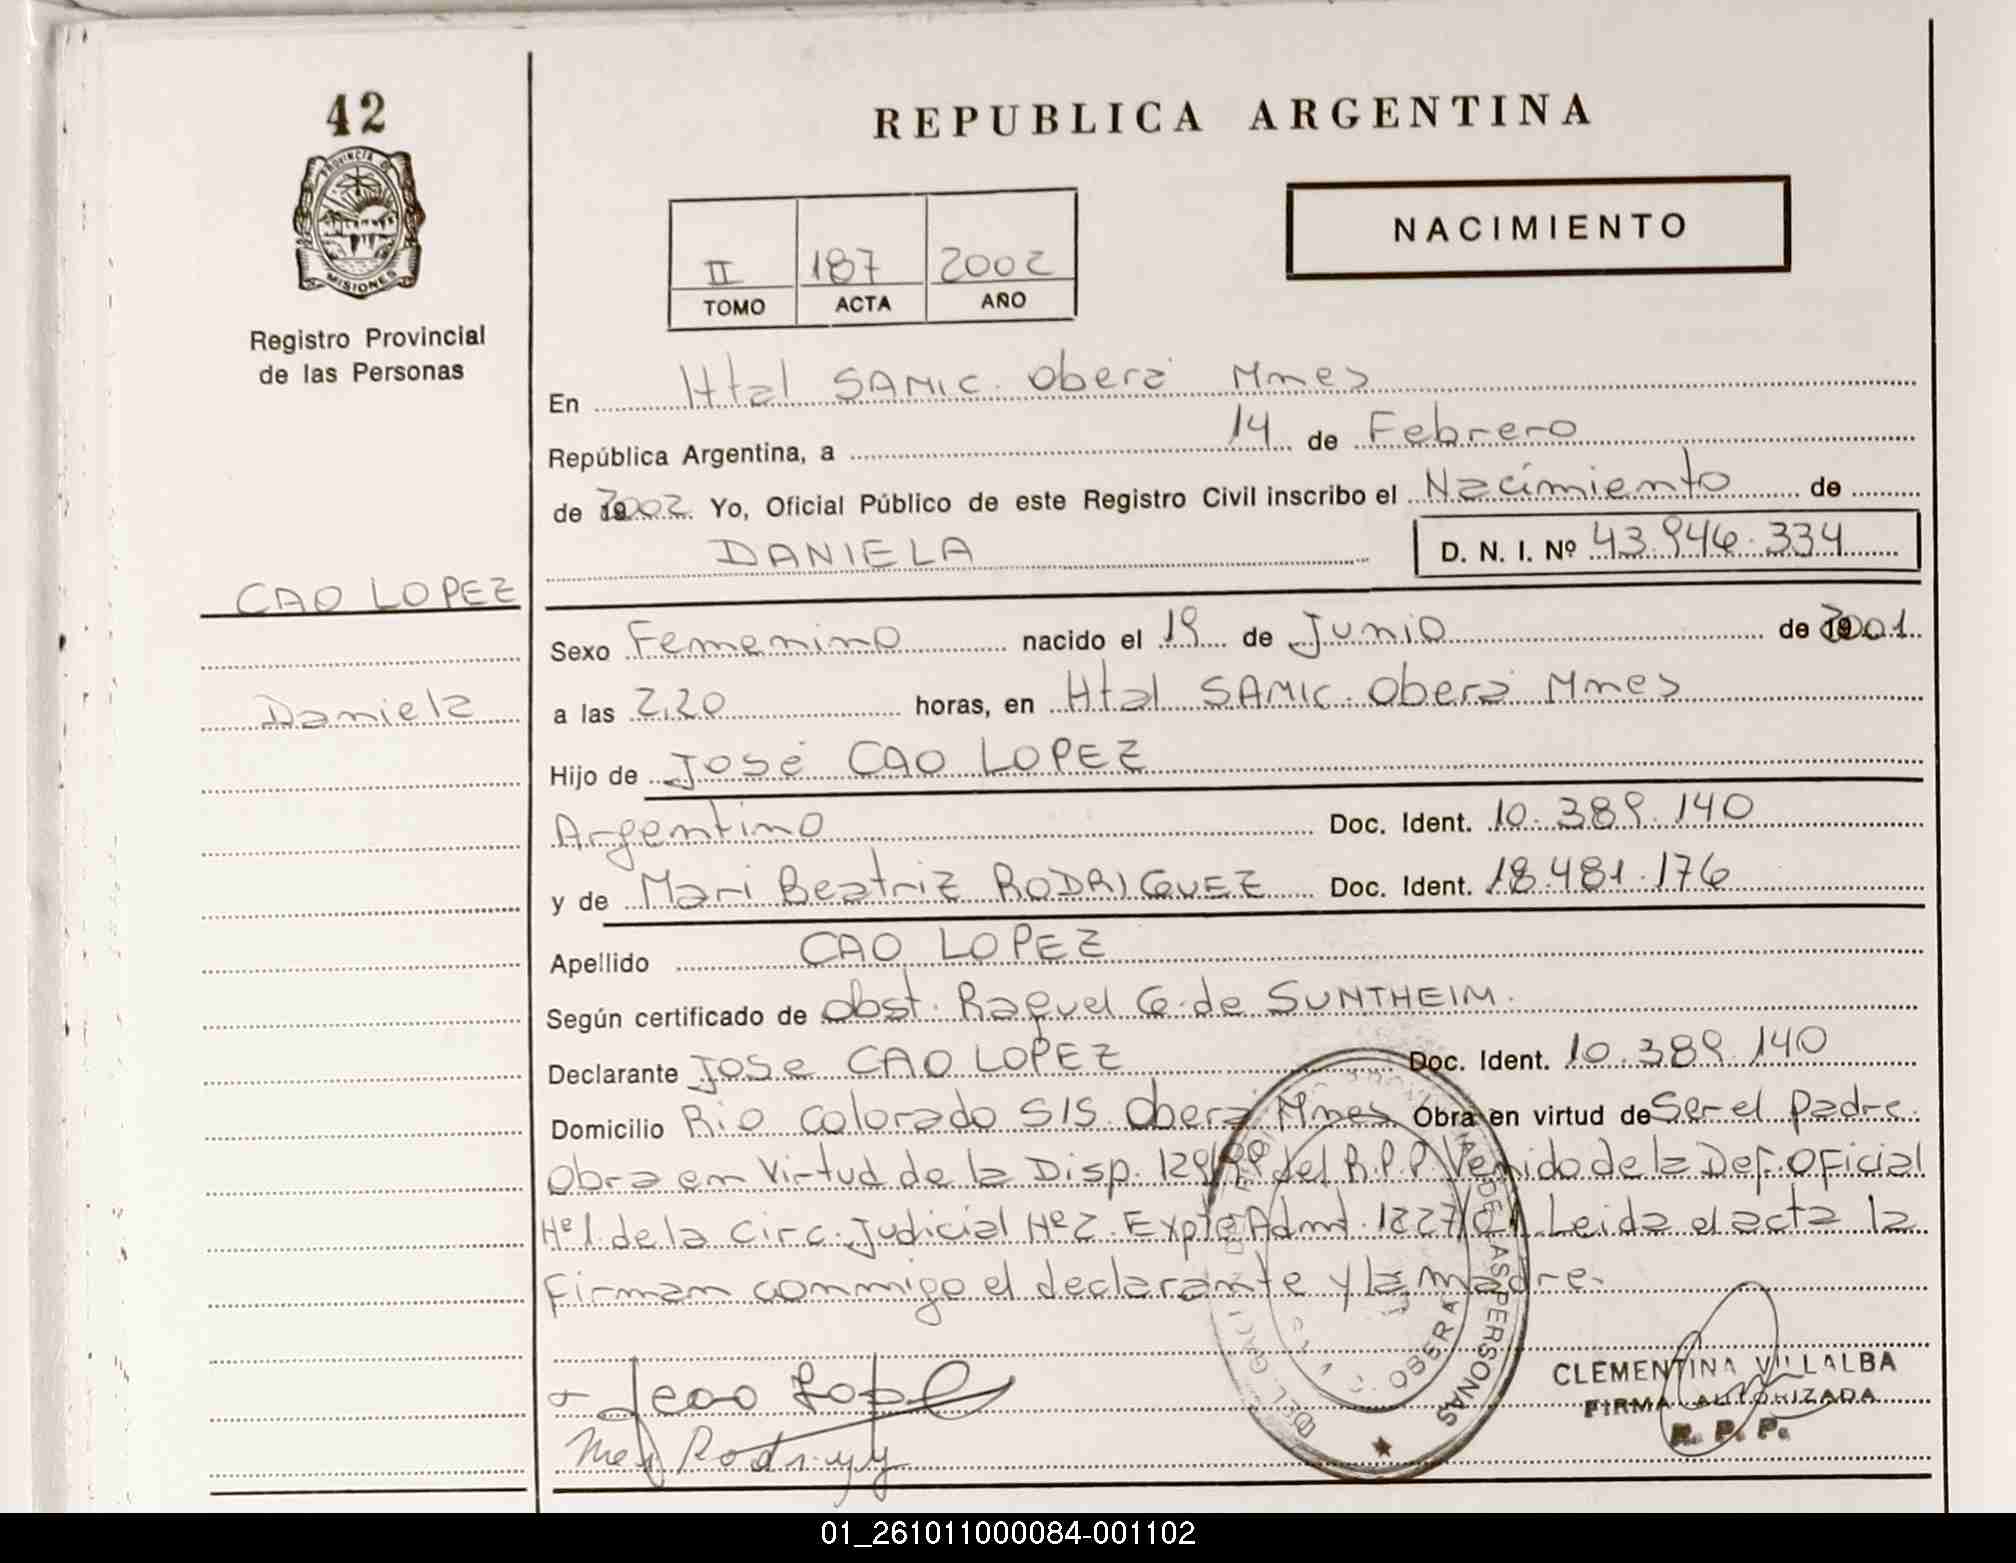 42
PROVINCIA D
MISIONES
Registro Provincial
de las Personas
CAO LOPEZ
Daniela
REPUBLICA ARGENTINA
NACIMIENTO
II 187 2002
TOMO ACTA AÑO
En Htal SAMIC. Oberá Mnes
República Argentina, a 14 de Febrero
de 2002 Yo, Oficial Público de este Registro Civil inscribo el Nacimiento de
DANIELA D. N. I. Nº 43.946.334
Sexo Femenino nacido el 19 de Junio de 2001
a las 2,20 horas, en Htal SAMIC. Oberá Mnes
Hijo de José CAO LOPEZ
Argentino Doc. Ident. 10.389.140
y de Mari Beatriz RODRIGUEZ Doc. Ident. 18.481.176
Apellido CAO LOPEZ
Según certificado de Obst. Raquel G. de SUNTHEIM.
Declarante José CAO LOPEZ Doc. Ident. 10.389.140
Domicilio Rio Colorado S/S. Oberá Mnes Obra en virtud de Ser el padre.
Obra en Virtud de la Disp. 129/99 del R.P.P. Venido de la Def. Oficial
Nº 1 de la Circ. Judicial Nº 2. Expte Admt. 1227/01. Leida el acta la
Firman conmigo el declarante y la madre.
DE LAS PERSONAS
OBERA
CLEMENTINA VILLALBA
FIRMA AUTORIZADA
R. P. P.
01_261011000084-001102